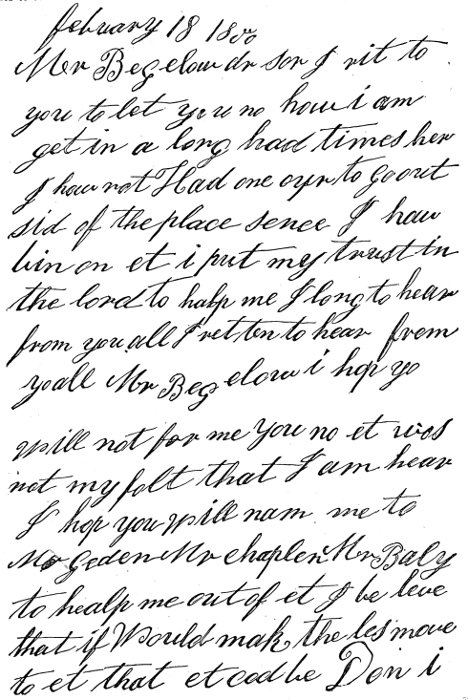 february 18 1800
Mr Begelow dr sor I rit to
you to let you no how i am
get in a long had times her
I hav not Had one oyr to go out
sid of the place sence I hav
bin on et i put my trust in
the lord to halp me I long to hear
from you all I ret ten to hear frem
yo all Mr Begelow i hop yo
will not for me You no et was
not my folt that I am hear
I hop you will nam me to
Mr Geden Mr chaplen Mr Baly
to healp me out of et I be leve
that if Would mak the les move
to et that et cod be Don i